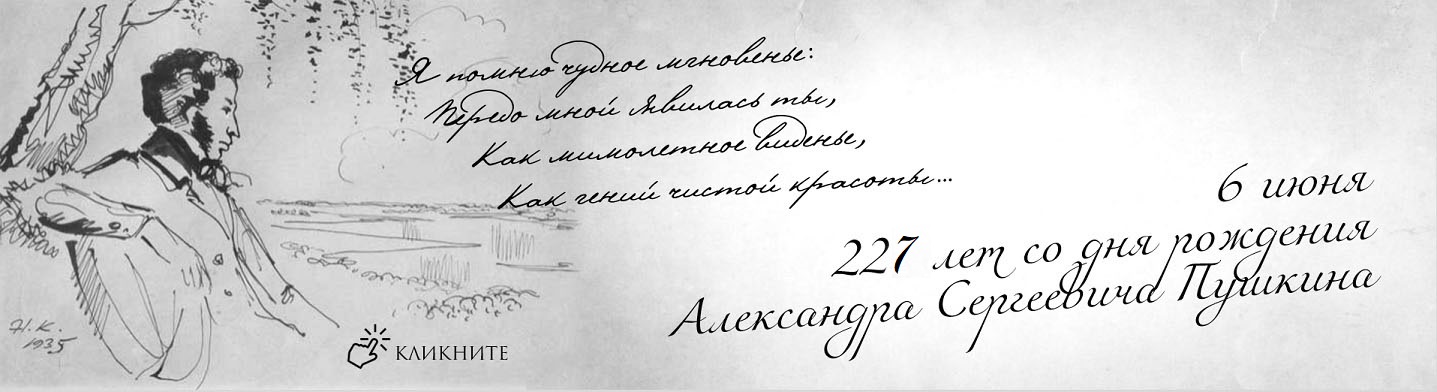 Я помню чудное мгновенье:
Передо мной явилась ты,
Как мимолетное виденье,
Как гений чистой красоты...
6 июня
227 лет со дня рождения
Александра Сергеевича Пушкина
Н.К.
1935
КЛИКНИТЕ